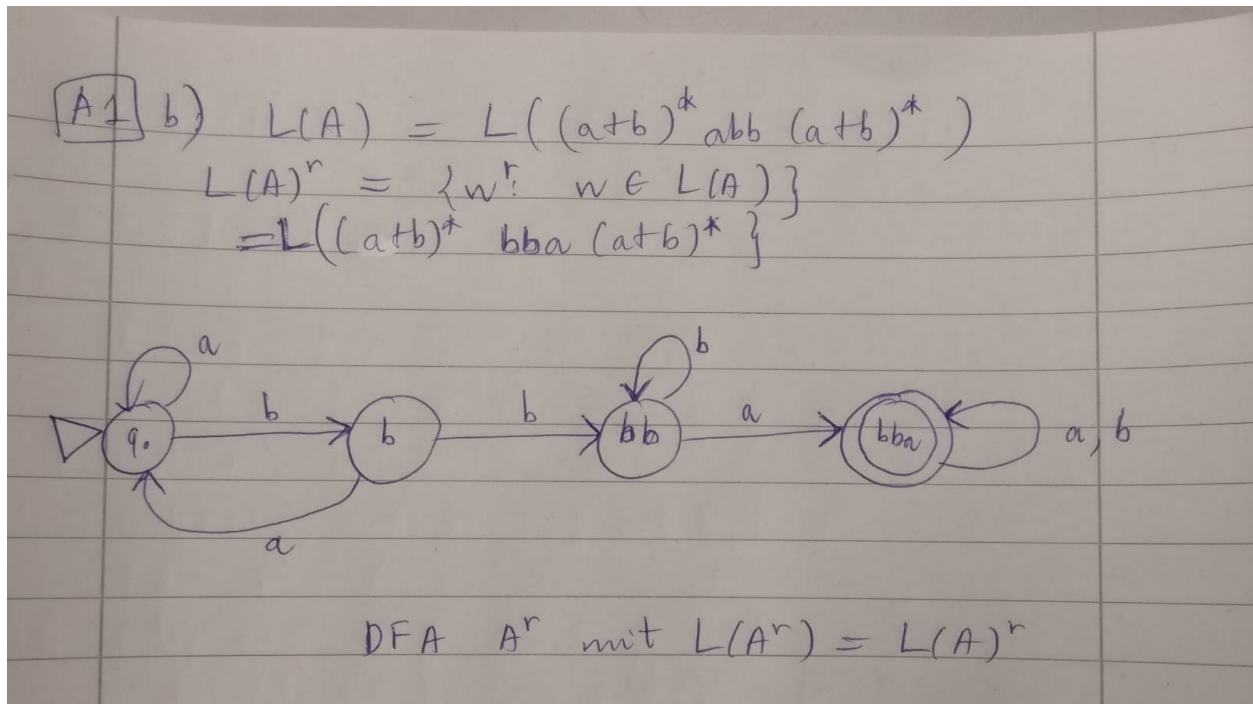 A1 b) L(A) = L((a+b)* abb (a+b)*)
L(A)ʳ = {wʳ: w ∈ L(A)}
=L((a+b)* bba (a+b)*}
a
b
b
b
a
q₀
b
bb
bba
a, b
a
DFA Aʳ mit L(Aʳ) = L(A)ʳ